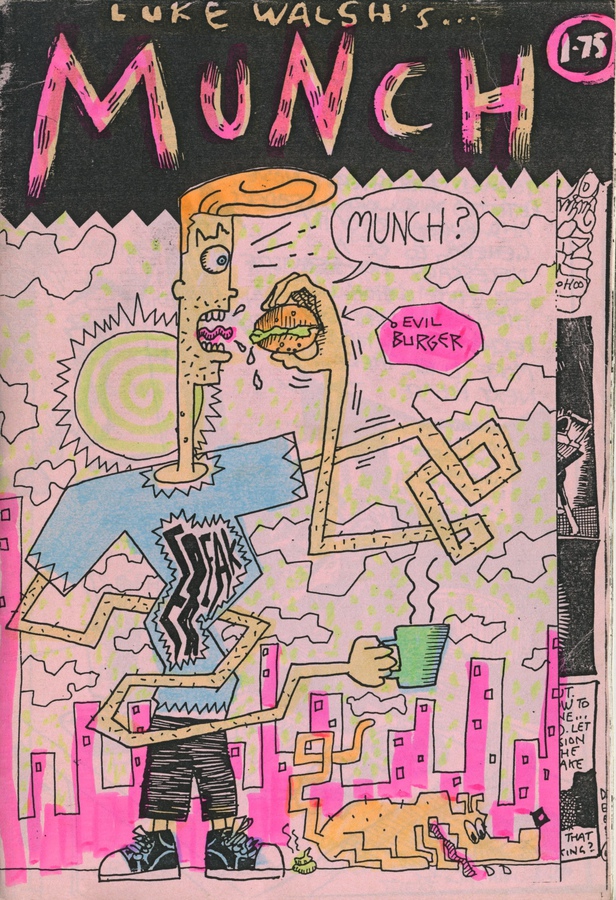 LUKE WALSH'S...
MUNCH
1.75
MUNCH?
EVIL
BURGER
FREAK
UT.
W TO
NE...
D. LET
SION
HE
AKE
THAT
KING?